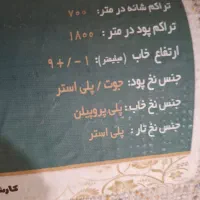 تراکم شانه در متر: ۷۰۰
تراکم پود در متر: ۱۸۰۰
ارتفاع خاب (میلیمتر): ۱ -/+ ۹
جنس نخ پود: جوت / پلی استر
جنس نخ خاب: پلی پروپیلن
جنس نخ تار: پلی استر